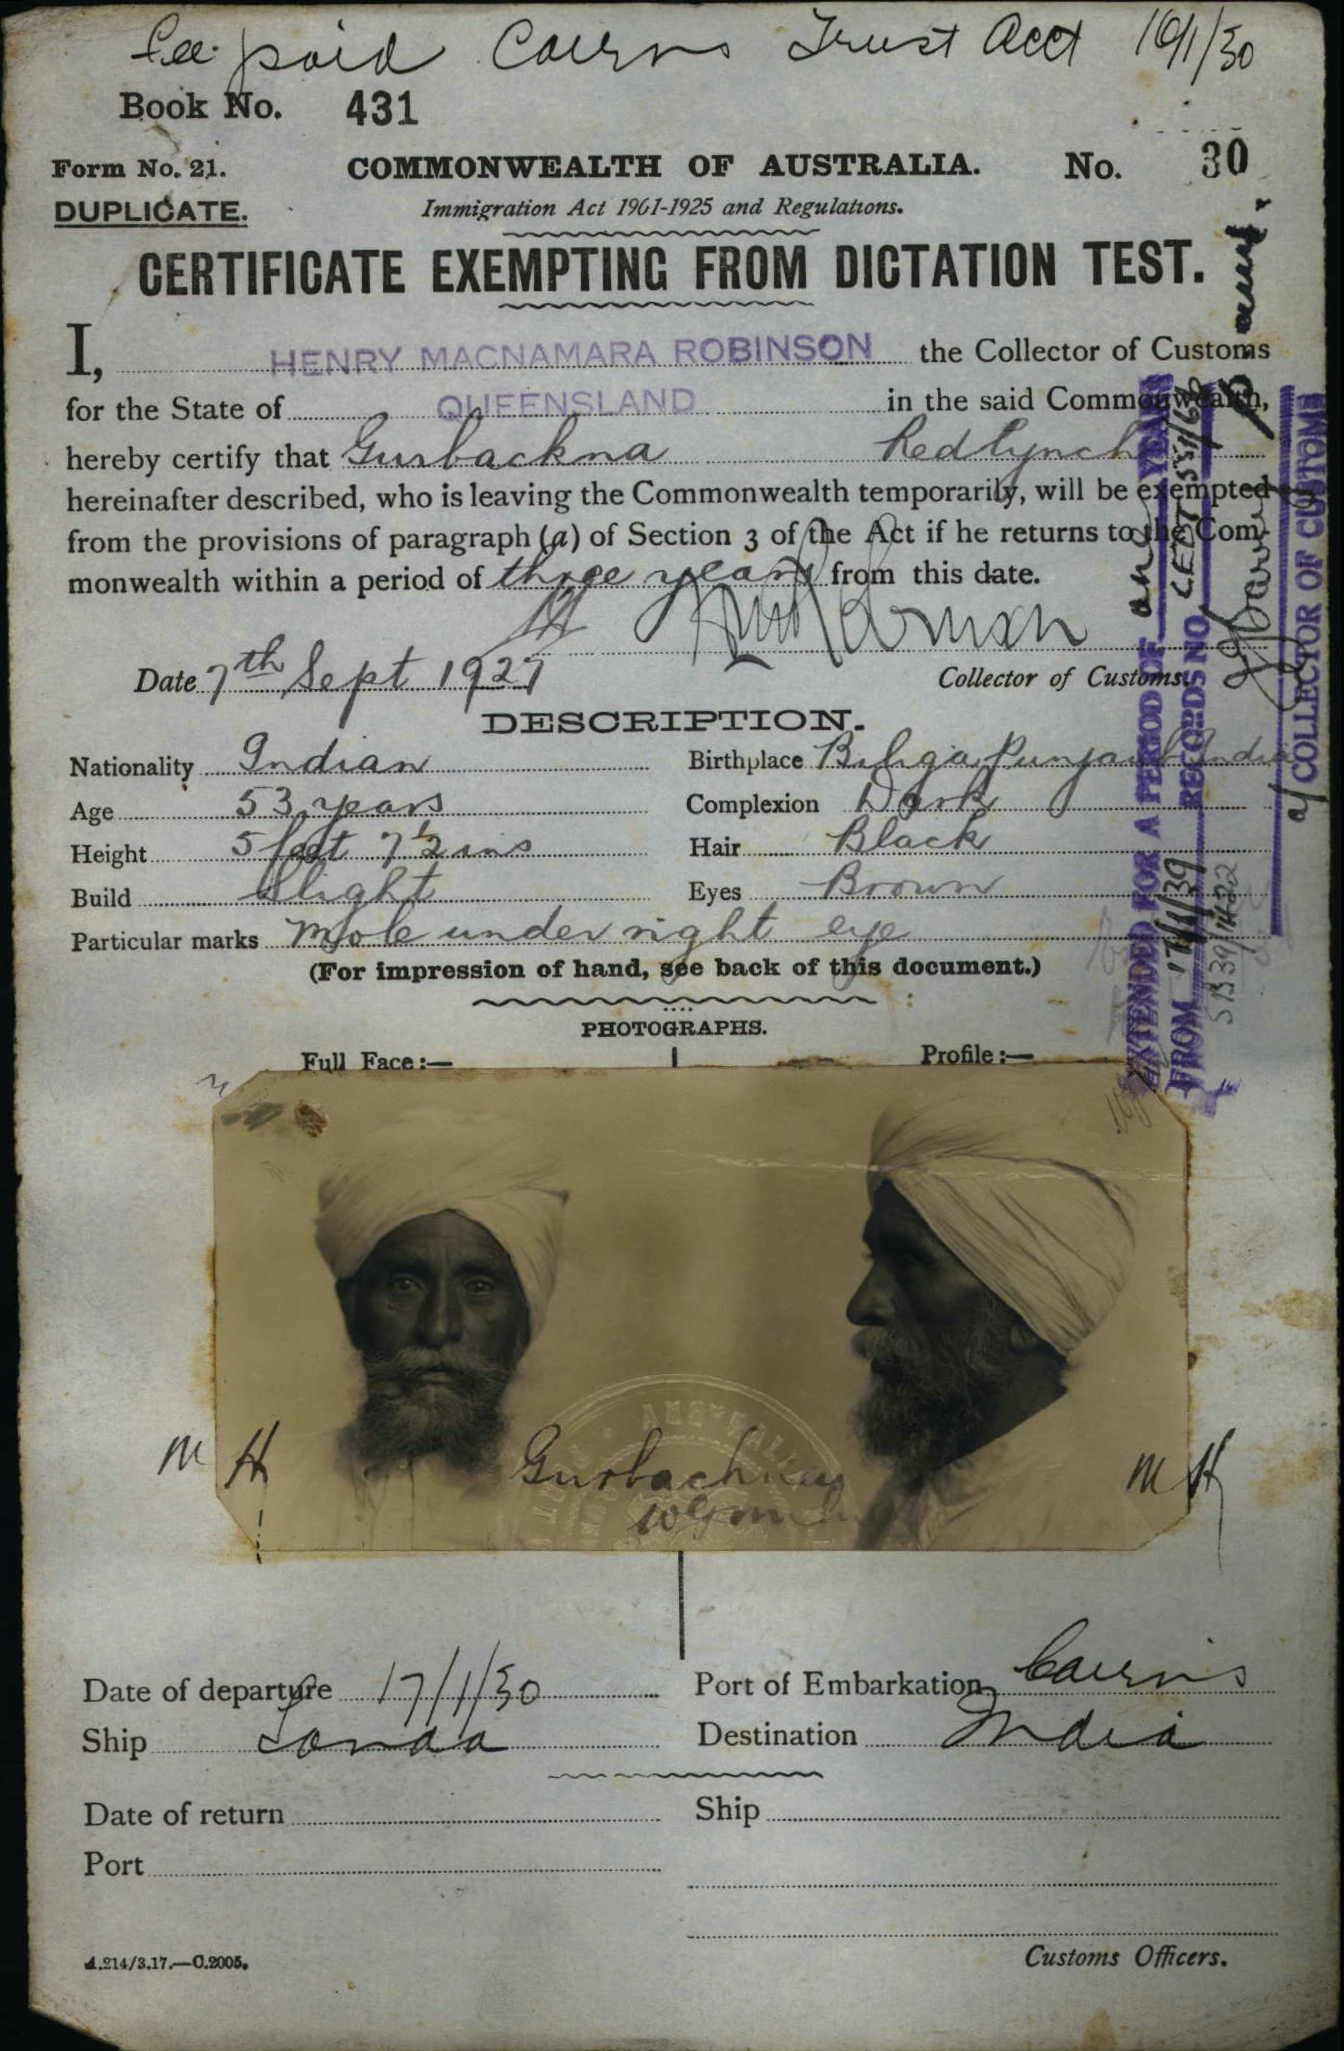 Fee paid Cairns Trust Acct 16/1/30
Book No. 431
Form No. 21. COMMONWEALTH OF AUSTRALIA. No. 30
DUPLICATE. Immigration Act 1901-1925 and Regulations.
CERTIFICATE EXEMPTING FROM DICTATION TEST.
I, HENRY MACNAMARA ROBINSON the Collector of Customs
for the State of QUEENSLAND in the said Commonwealth,
hereby certify that Gurbackna Redlynch
hereinafter described, who is leaving the Commonwealth temporarily, will be exempted
from the provisions of paragraph (a) of Section 3 of the Act if he returns to the Com-
monwealth within a period of three years from this date.
Date 7th Sept 1927 Collector of Customs.
DESCRIPTION.
Nationality Indian Birthplace Bilga Punjaub India
Age 53 years Complexion Dark
Height 5 feet 7½ ins Hair Black
Build Slight Eyes Brown
Particular marks Mole under right eye
(For impression of hand, see back of this document.)
PHOTOGRAPHS.
Full Face:— Profile:—
M H Gurbachna M H
Date of departure 17/1/30 Port of Embarkation Cairns
Ship Tanda Destination India
Date of return Ship
Port
A.214/3.17.—C.2005. Customs Officers.
EXTENDED FOR A PERIOD OF one YEAR
FROM 17/1/39 RECORDS NO. CEDT
a/ COLLECTOR OF CUSTOMS